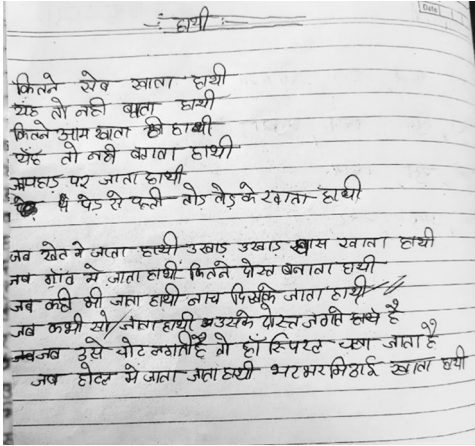 हाथी
कितने सेब खाता हाथी
यह तो नही बाता हाथी
कितने आम खाता हाथी
यह तो नही बगता हाथी
पहाड पर जाता हाथी
पेड से पत्ती तोड तोड़ के खाता हाथी
जब खेत मे जाता हाथी उखाड उखाड घास खाता हाथी
जब गाँव मे जाता हाथी कितने दोस्त बनाता हाथी
जब कही भी जाता हाथी नाच जाता हाथी
जब कभी सो जाता हाथी उसके दोस्त जगाते हाथी है
जब उसे चोट लगती है तो हॉस्पिटल चला जाता है
जब होटल मे जाता जाता हाथी भरभर मिठाई खाता हाथी